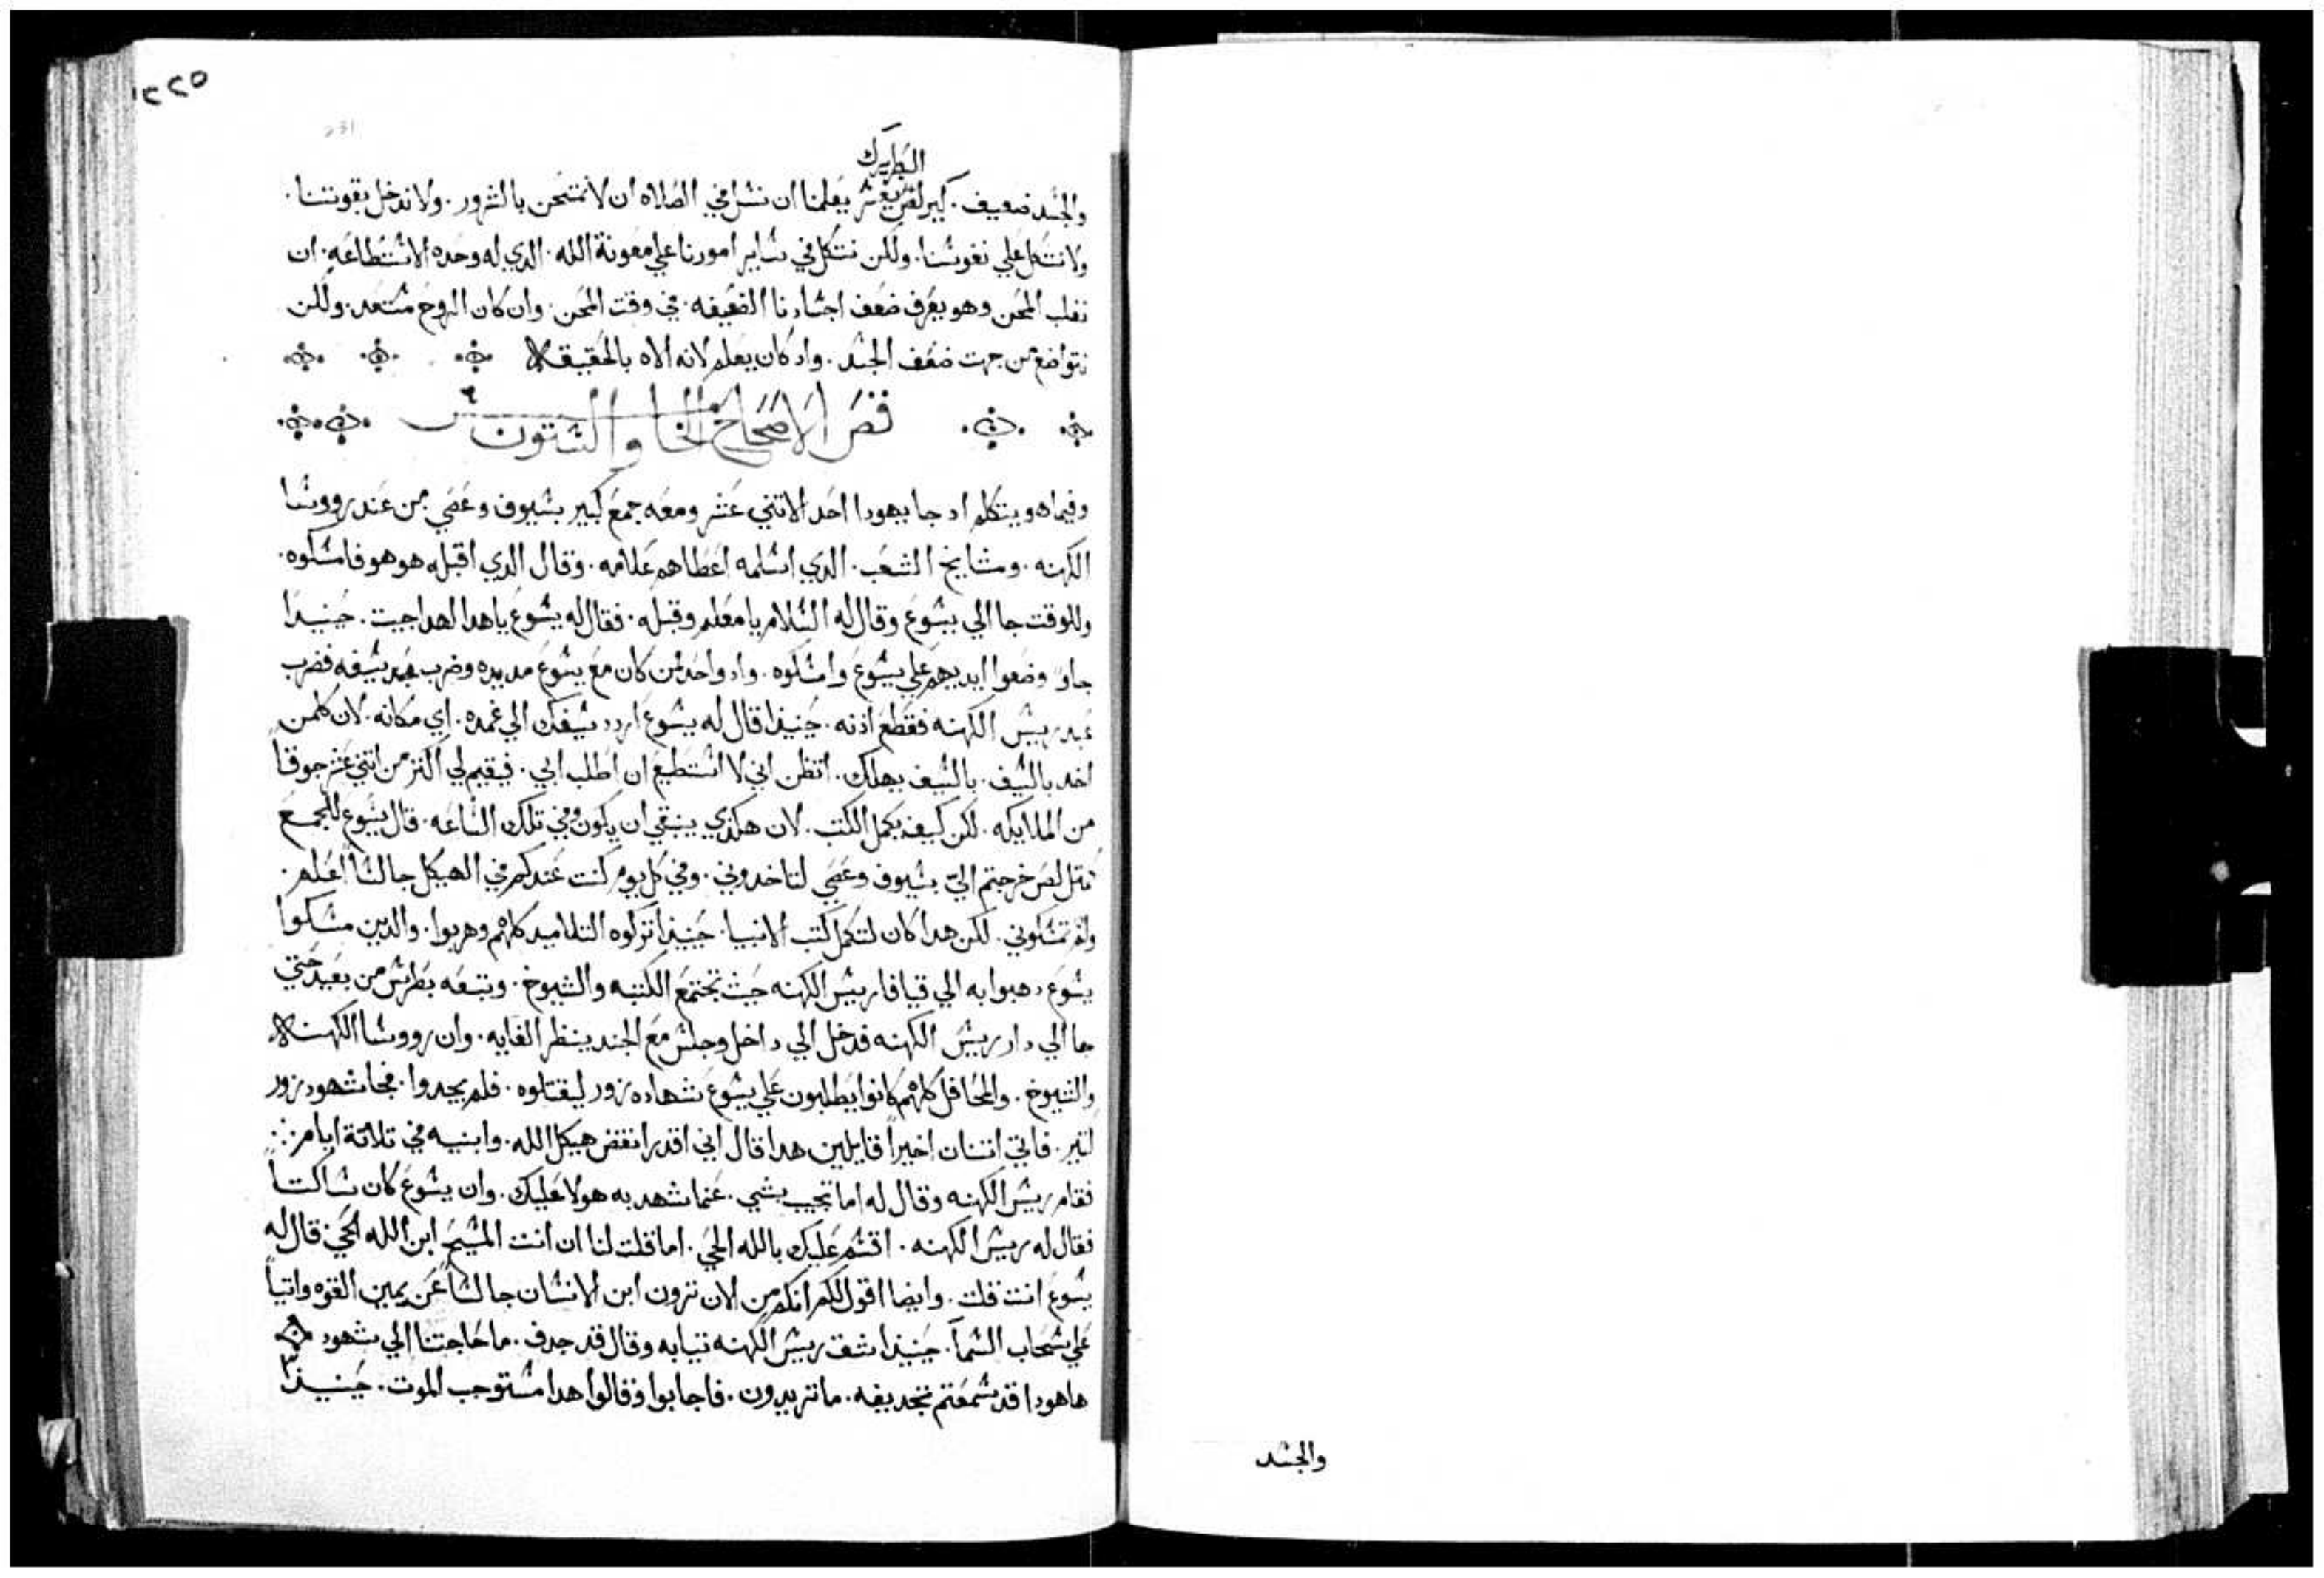 والجسد
٢٢٥
231
البطريرك
والجسد ضعيف. كيرلس يعلمنا ان نسل في الصلاه ان لا نمتحن بالشرور. ولا ندخل بقوتنا.
ولا نتكل علي نفوسنا. ولكن نتكل في ساير امورنا علي معونة الله. الدي له وحده الاستطاعه. ان
نغلب المحن وهو يعرف ضعف اجسادنا الضعيفه. في وقت المحن. وان كان الروح مستعد. ولكن
نتواضع من جهت ضعف الجسد. واد كان يعلم لانه الاه بالحقيقه
فص الاصحاح الخامس والستون
وفيما هو يتكلم اد جا يهودا احد الاتني عشر ومعه جمع كبير بسيوف وعصي من عند رووسا
الكهنه. ومشايخ الشعب. الدي اسلمه اعطاهم علامه. وقال الدي اقبله هو هو فامسكوه.
وللوقت جا الي يسوع وقال له السلام يا معلم وقبله. فقال له يسوع يا هدا الهدا جيت. حينيدا
جاو وضعوا ايديهم علي يسوع وامسكوه. واد واحد من كان مع يسوع مد يده وضرب بسيفه فضرب
عبد رييس الكهنه فقطع ادنه. حينيدا قال له يسوع اردد سيفك الي غمده. اي مكانه. لان كلمن
اخد بالسيف. بالسيف يهلك. اتظن اني لا استطيع ان اطلب ابي. فيقيم لي اكتر من اتني عشر جوقاً
من الملايكه. لكن كيف يكمل الكتب. لان هكدي ينبقي ان يكون وفي تلك الساعه. قال يسوع للجمع
كمتل لص خرجتم الي بسيوف وعصي لتاخدوني. وفي كل يوم كنت عندكم في الهيكل جالساً اعلم.
ولم تمسكوني. لكن هدا كان لتكمل كتب الانبيا. حينيدا تركوه التلاميد كلهم وهربوا. والدين مسكوا
يسوع دهبوا به الي قيافا رييس الكهنه حيت تجتمع الكتبه والشيوخ. وتبعه بطرس من بعيد حتي
جا الي دار رييس الكهنه فدخل الي داخل وجلس مع الجند ينظر الغايه. وان رووسا الكهنه
والشيوخ. والمحافل كلهم كانوا يطلبون علي يسوع شهاده زور ليقتلوه. فلم يجدوا. فجا شهود زور
كتير. فاتي اتنان اخيراً قايلين هدا قال اني اقدر انقض هيكل الله. وابنيه في تلاتة ايام
فقام رييس الكهنه وقال له اما تجيب بشي. عما شهد به هولا عليك. وان يسوع كان ساكتاً
فقال له رييس الكهنه. اقسم عليك بالله الحي. اما قلت لنا ان انت المسيح ابن الله الحي. قال له
يسوع انت قلت. وايضا اقول لكم انكم من الان ترون ابن الانسان جالساً عن يمين القوه واتياً
علي سحاب السما. حينيدا شق رييس الكهنه تيابه وقال قد جدف. ما حاجتنا الي شهود
ها هودا قد سمعتم تجديفه. ما تريدون. فاجابوا وقالوا هدا مستوجب الموت. حينيدا